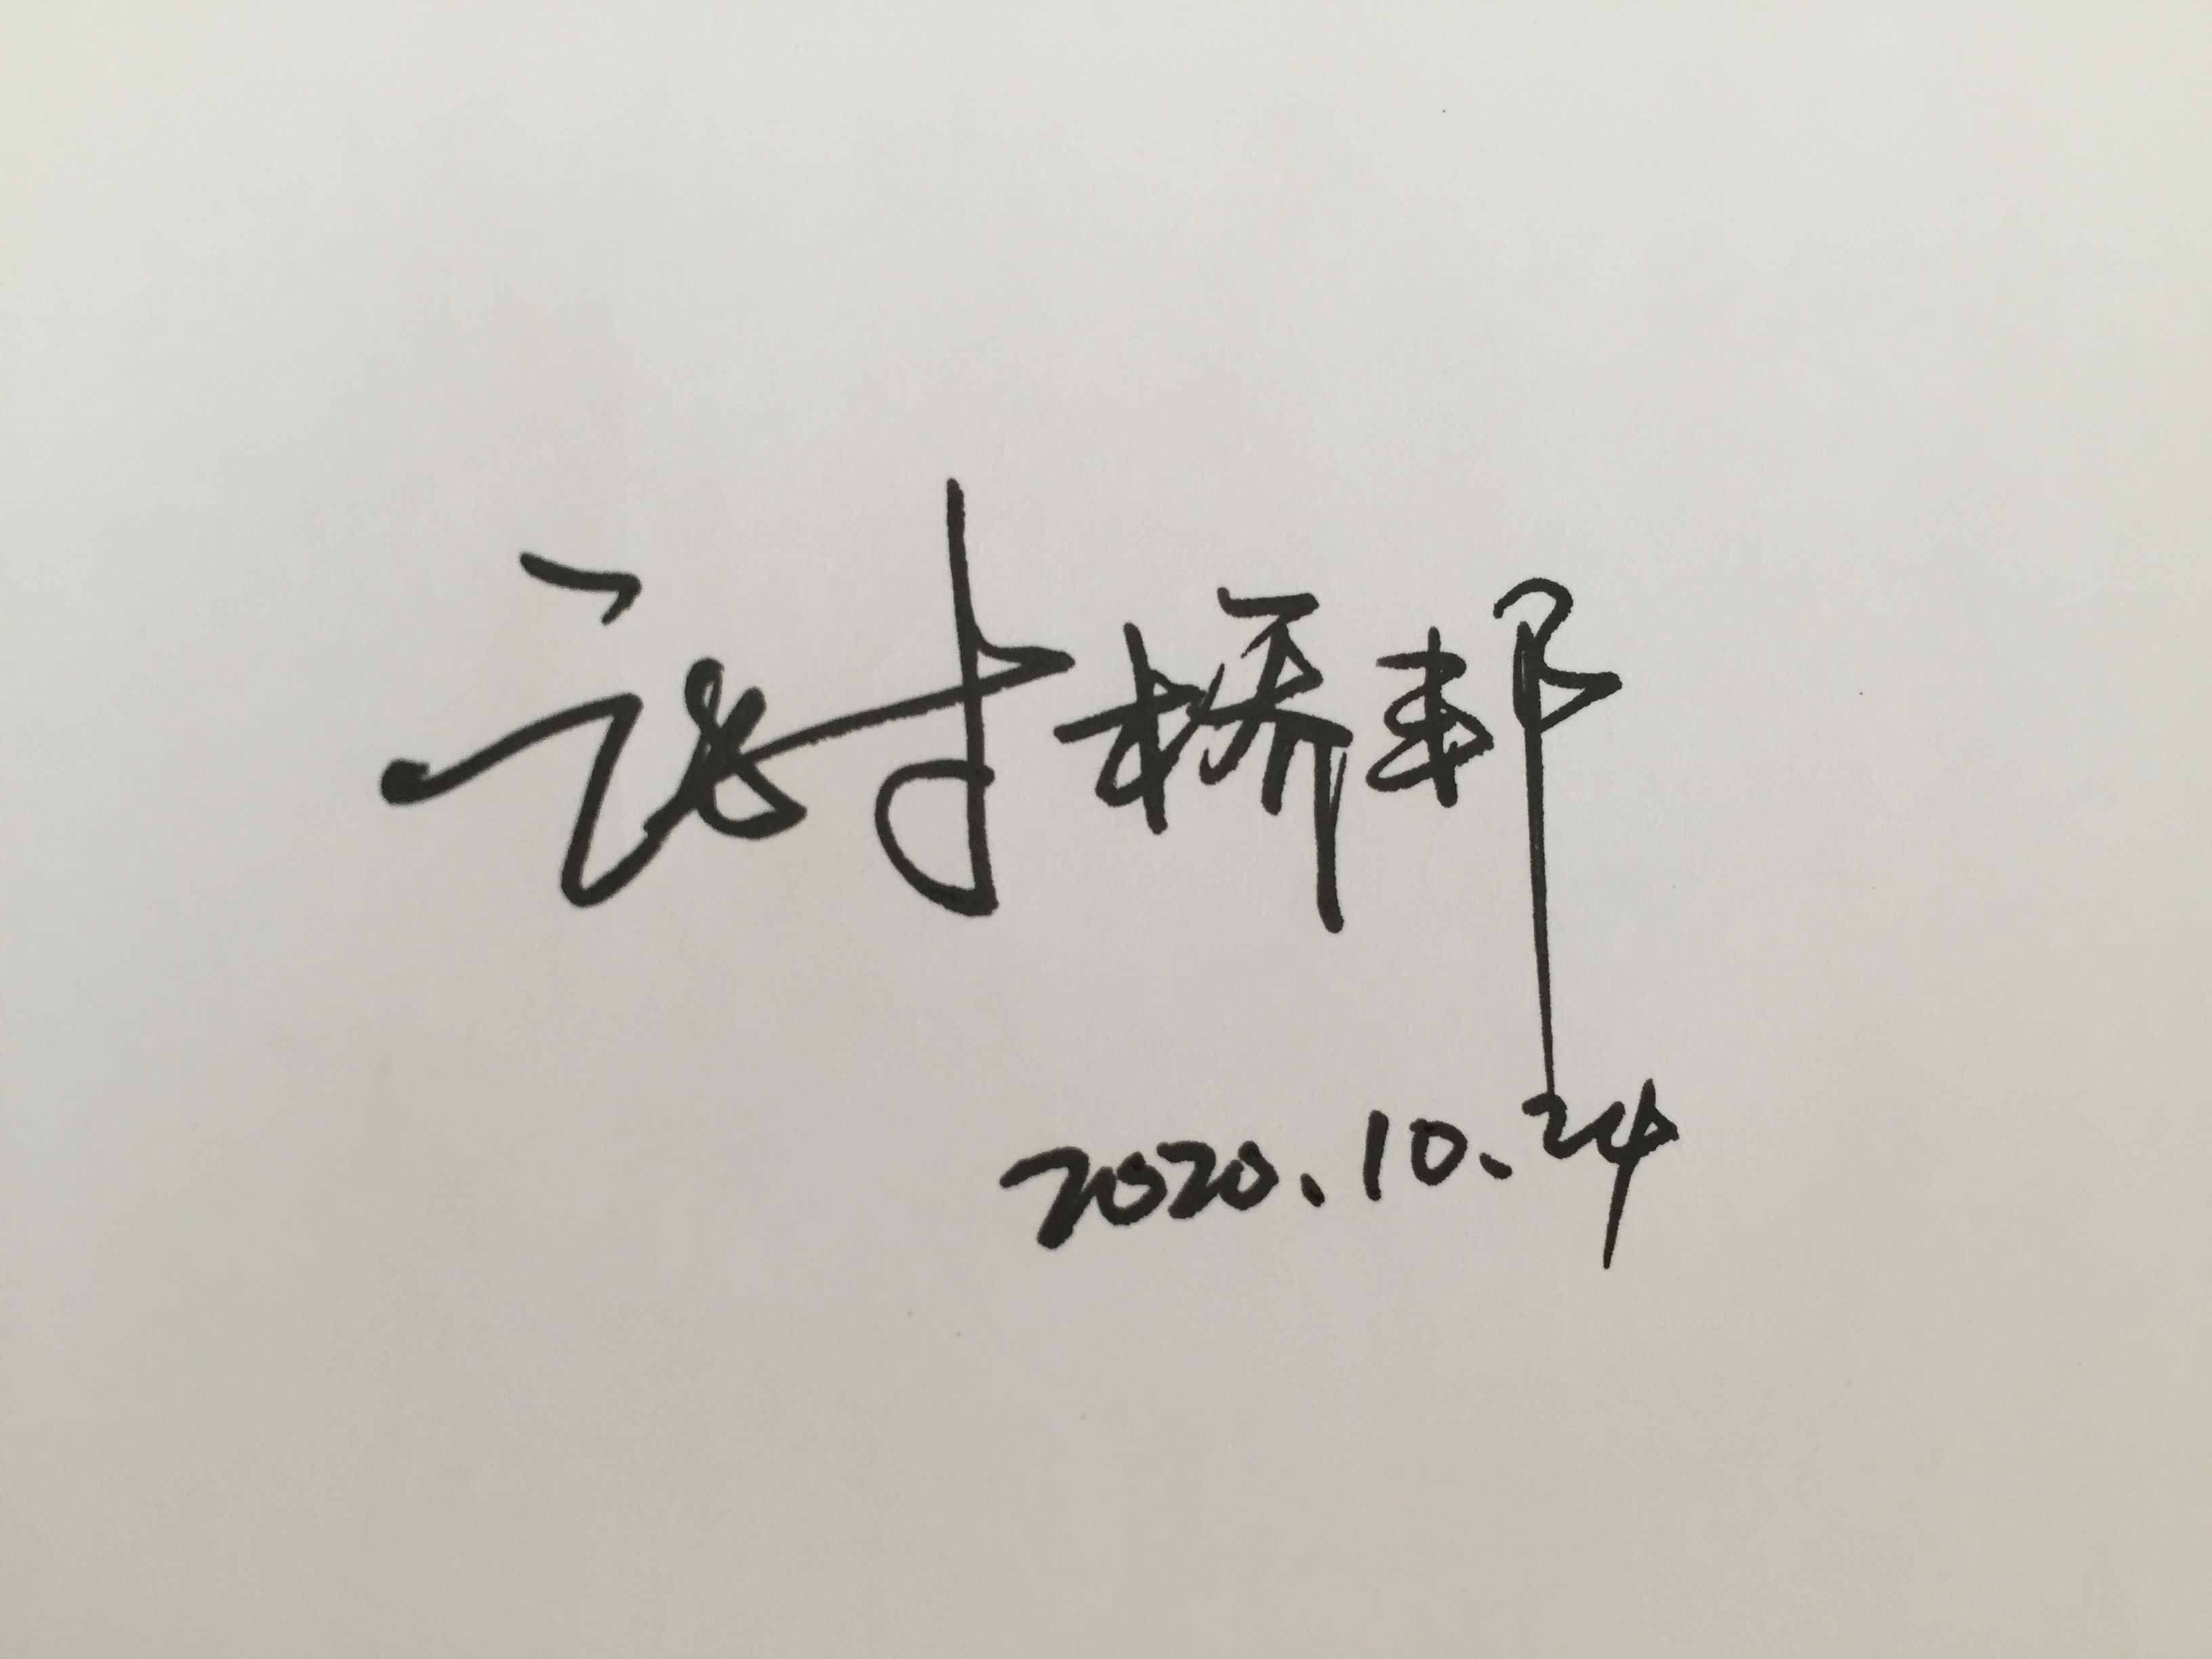 谢桥邦
2020.10.24